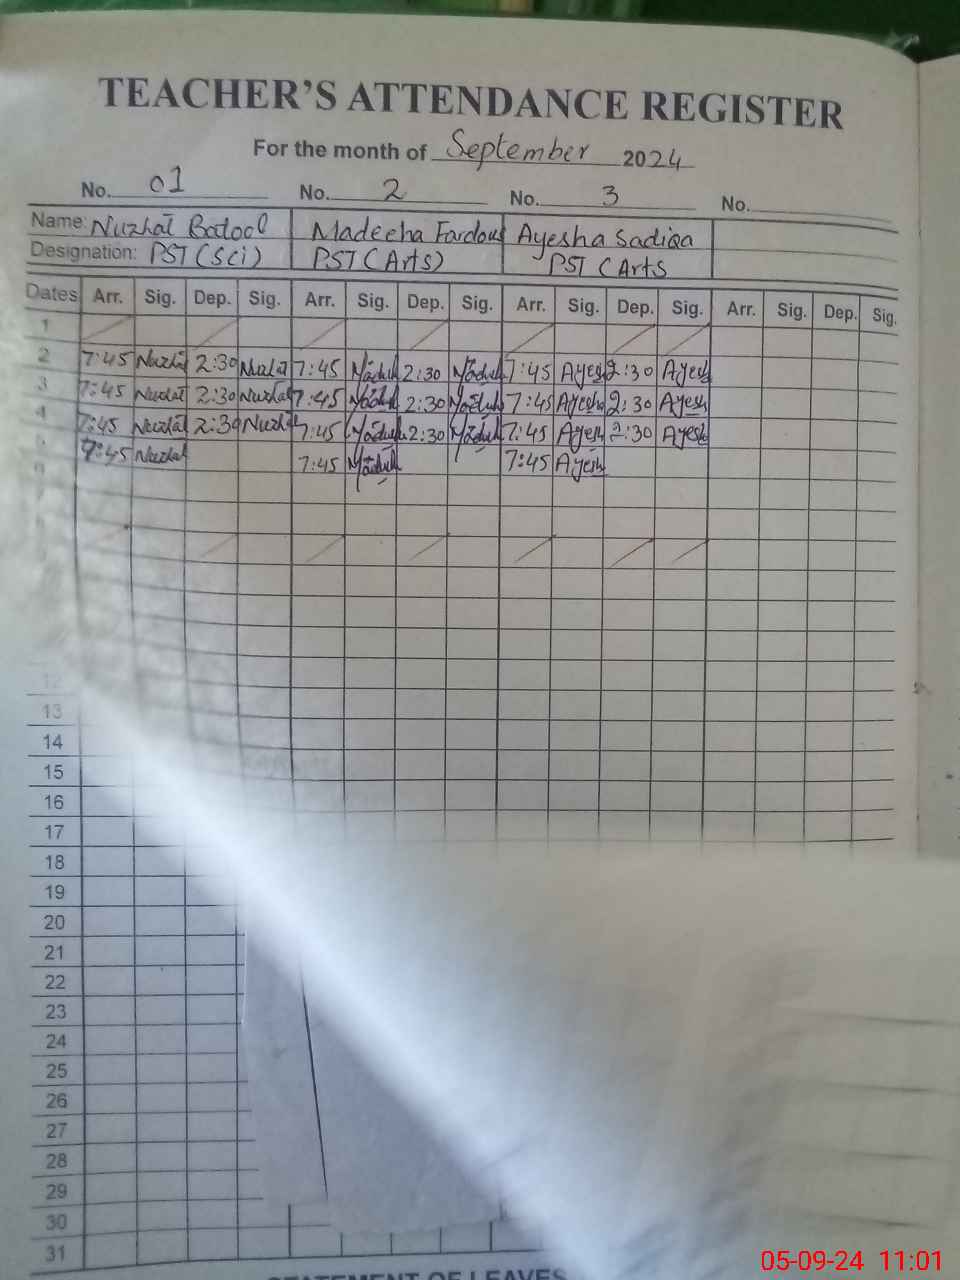 TEACHER'S ATTENDANCE REGISTER
For the month of September 2024
No. 01 No. 2 No. 3 No.
Name: Nuzhat Batool Madeeha Fardous Ayesha Sadiqa
Designation: PST (Sci) PST (Arts) PST (Arts
Dates Arr. Sig. Dep. Sig. Arr. Sig. Dep. Sig. Arr. Sig. Dep. Sig. Arr. Sig. Dep. Sig.
1
2 7:45 Nuzhat 2:30 7:45 2:30 7:45 Ayesh 2:30 Ayesh
3 7:45 Nuzhat 2:30 Nuzhat 7:45 2:30 7:45 Ayesha 2:30 Ayesh
4 7:45 Nuzhat 2:30 Nuzhat 7:45 2:30 7:45 Ayesh 2:30 Ayesh
7:45 Nuzhat 7:45 7:45 Ayesh
12
13
14
15
16
17
18
19
20
21
22
23
24
25
26
27
28
29
30
31
STATEMENT OF LEAVES
05-09-24 11:01